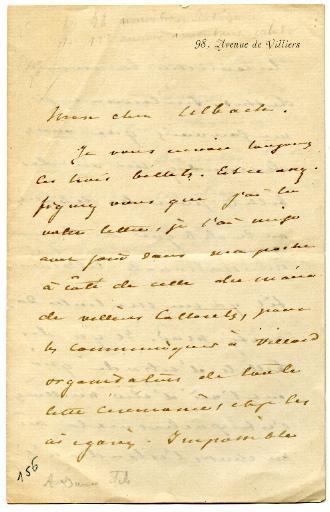 98. Avenue de Villiers
Mon cher Ulbach.
Je vous envoie toujours
les trois billets. Est ce assez
figurez vous que j'ai lu
votre lettre, je l'ai mise
avec soin dans ma poche
à côté de celle du maire
de Villers Cotterets, pour
les communiquer à Villard
organisateur de toute
cette cérémonie, et je les
ai égarés. Impossible
156
A. Dumas Fils